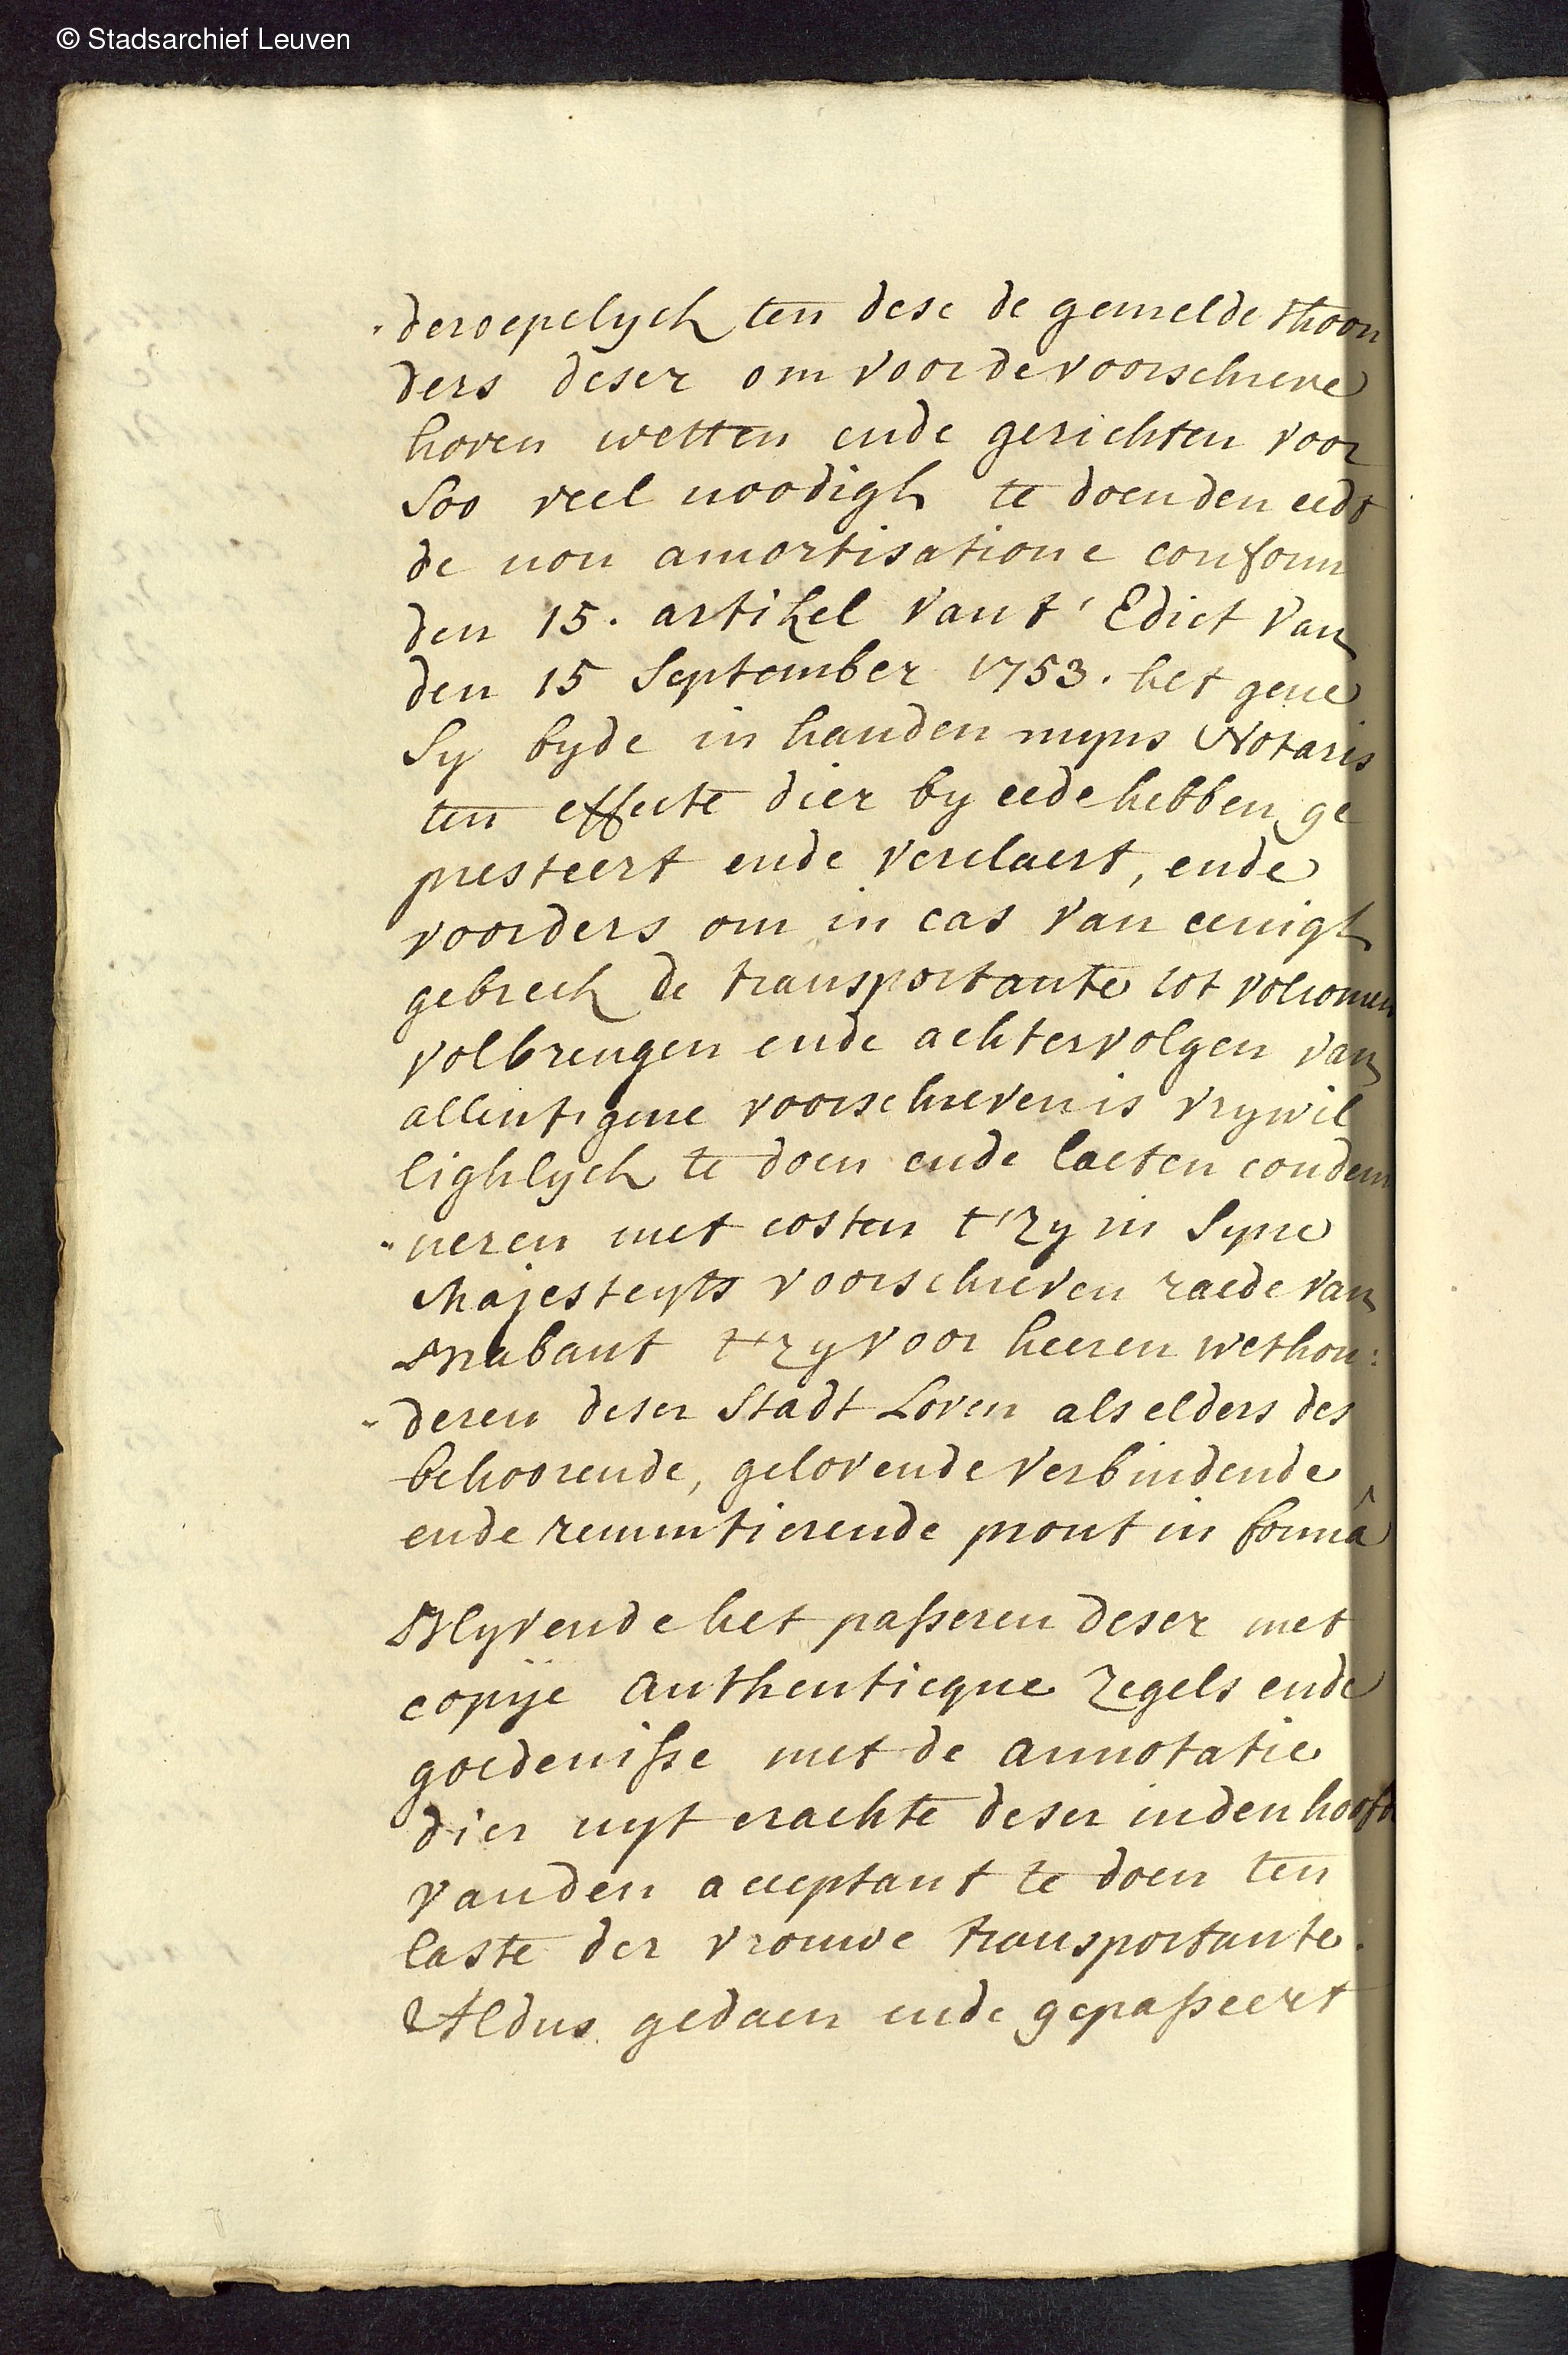 © Stadsarchief Leuven
deroepelyck ten dese de gemelde thoon
ders deser om voor de voorschreve
hoven wetten ende gerichten voor
Soo veel noodigh te doen den eedt
de non amortisatione conform
den 15. artikel vant' Edict van
den 15 September 1753. het gene
Sy byde in handen myns Notaris
ten effecte dier by eede hebben ge
presteert ende verclaert, ende
voorders om in cas van eenigh
gebreck de transportante tot volcomen
volbrengen ende achtervolgen van
allent'gene voorschreven is vrywil
lighlyck te doen ende laeten condem
neren met costen t'zy in Syne
Majesteyts voorschreven raede van
Brabant t'zy voor heeren wethou:
deren deser Stadt Loven als elders des
behoorende, gelovende verbindende
ende renuntierende prout in formâ
Blyvende het passeren deser met
copÿe authenticque zegels ende
goedenisse met de annotatie
dier uyt crachte deser inden hoofde
vanden acceptant te doen ten
laste der vrouwe transportante.
Aldus gedaen ende gepasseert